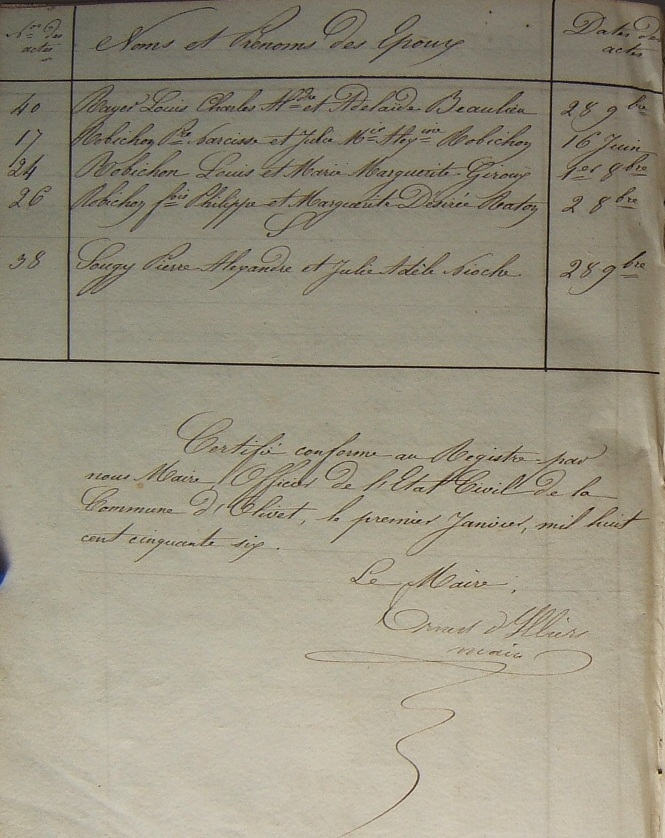 Nos des actes Noms et Prénoms des Epoux Dates des actes
40 Rayer Louis Charles Aldre et Adelaïde Beaulieu 28 9bre
17 Robichon Rre Narcisse et Julie Mie Alexine Robichon 16 Juin
24 Robichon Louis et Marie Marguerite Giroux 1er 8bre
26 Robichon fois Philippe et Marguerite Désirée Raton 2 8bre
S
38 Sougy Pierre Alexandre et Julie Adèle Nioche 28 9bre
Certifié conforme au Registre par
nous Maire, Officier de l'Etat Civil de la
Commune d'Olivet, le premier Janvier, mil huit
cent cinquante six.
Le Maire,
Ernest d'Illiers
maire